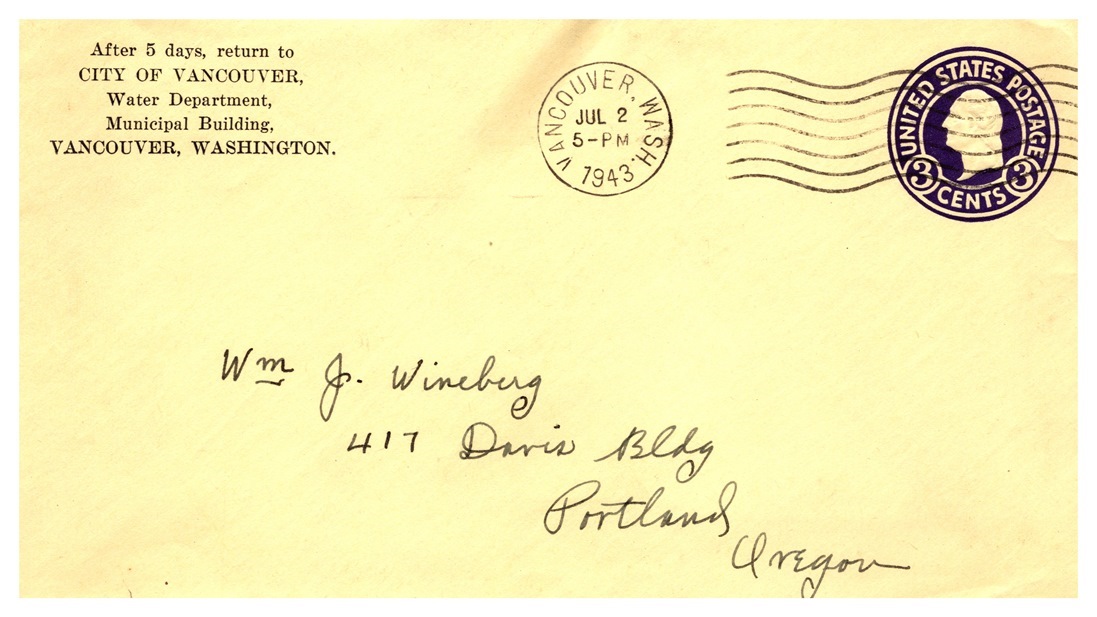 After 5 days, return to
CITY OF VANCOUVER,
Water Department,
Municipal Building,
VANCOUVER, WASHINGTON.
VANCOUVER, WASH.
JUL 2
5-PM
1943
UNITED STATES POSTAGE
3 CENTS 3
Wm J. Wineberg
417 Davis Bldg
Portland
Oregon